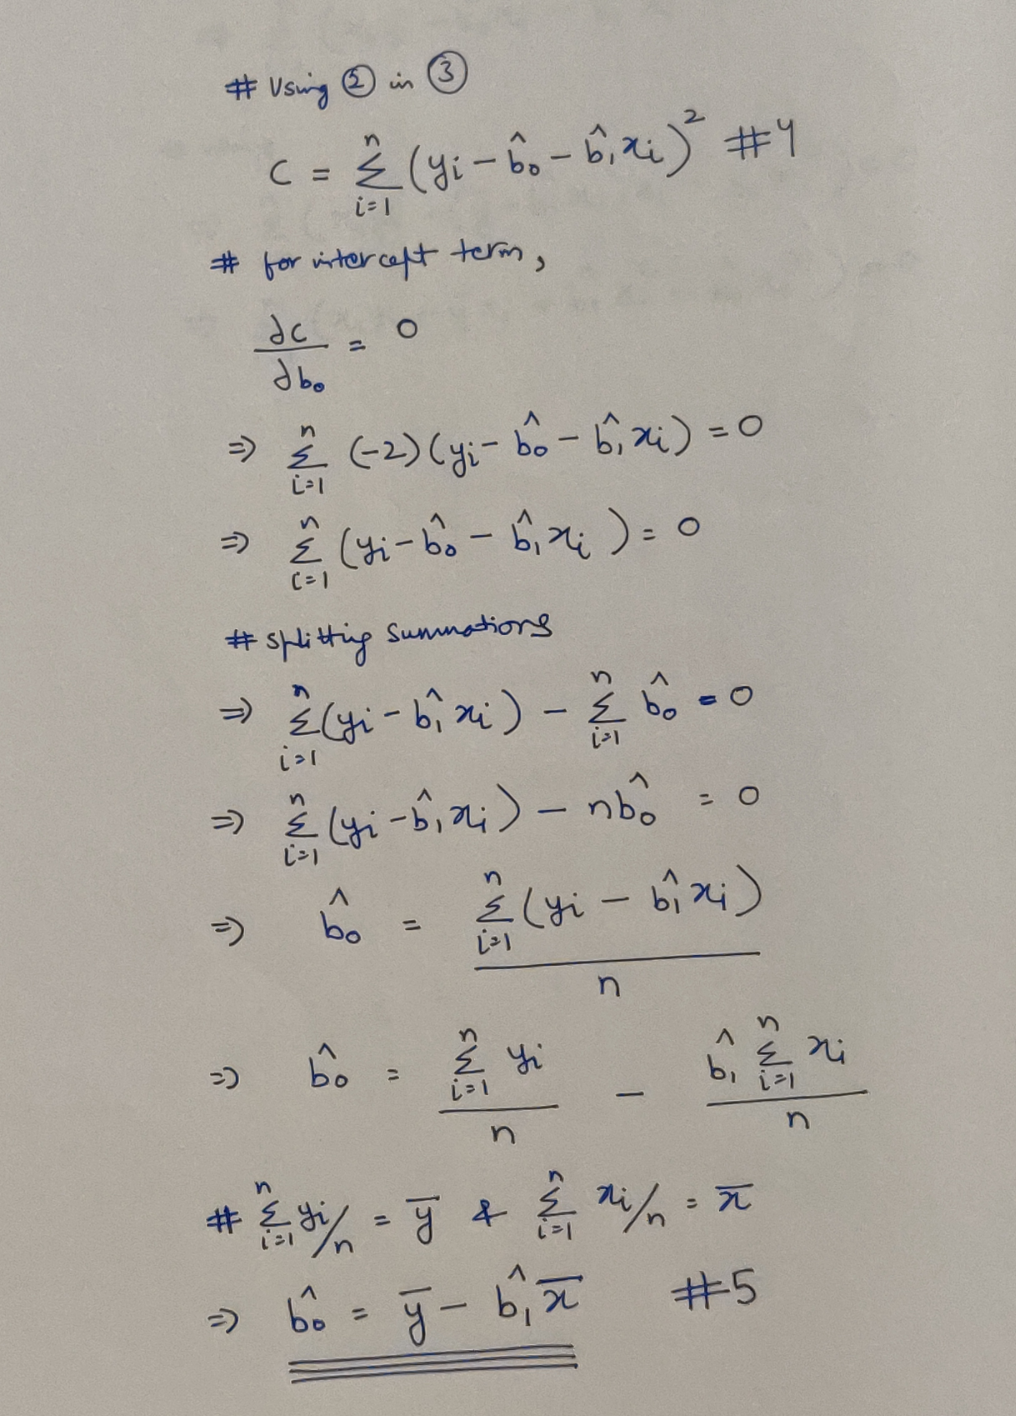 # Using ② in ③
C = Σ_{i=1}^{n} (yi - b̂₀ - b̂₁xi)² #4
# for intercept term,
∂c/∂b₀ = 0
⇒ Σ_{i=1}^{n} (-2)(yi - b̂₀ - b̂₁xi) = 0
⇒ Σ_{i=1}^{n} (yi - b̂₀ - b̂₁xi) = 0
# splitting summations
⇒ Σ_{i=1}^{n} (yi - b̂₁xi) - Σ_{i=1}^{n} b̂₀ = 0
⇒ Σ_{i=1}^{n} (yi - b̂₁xi) - nb̂₀ = 0
⇒ b̂₀ = Σ_{i=1}^{n} (yi - b̂₁xi) / n
⇒ b̂₀ = Σ_{i=1}^{n} yi / n - b̂₁ Σ_{i=1}^{n} xi / n
# Σ_{i=1}^{n} yi/n = ȳ & Σ_{i=1}^{n} xi/n = x̄
⇒ b̂₀ = ȳ - b̂₁x̄ #5